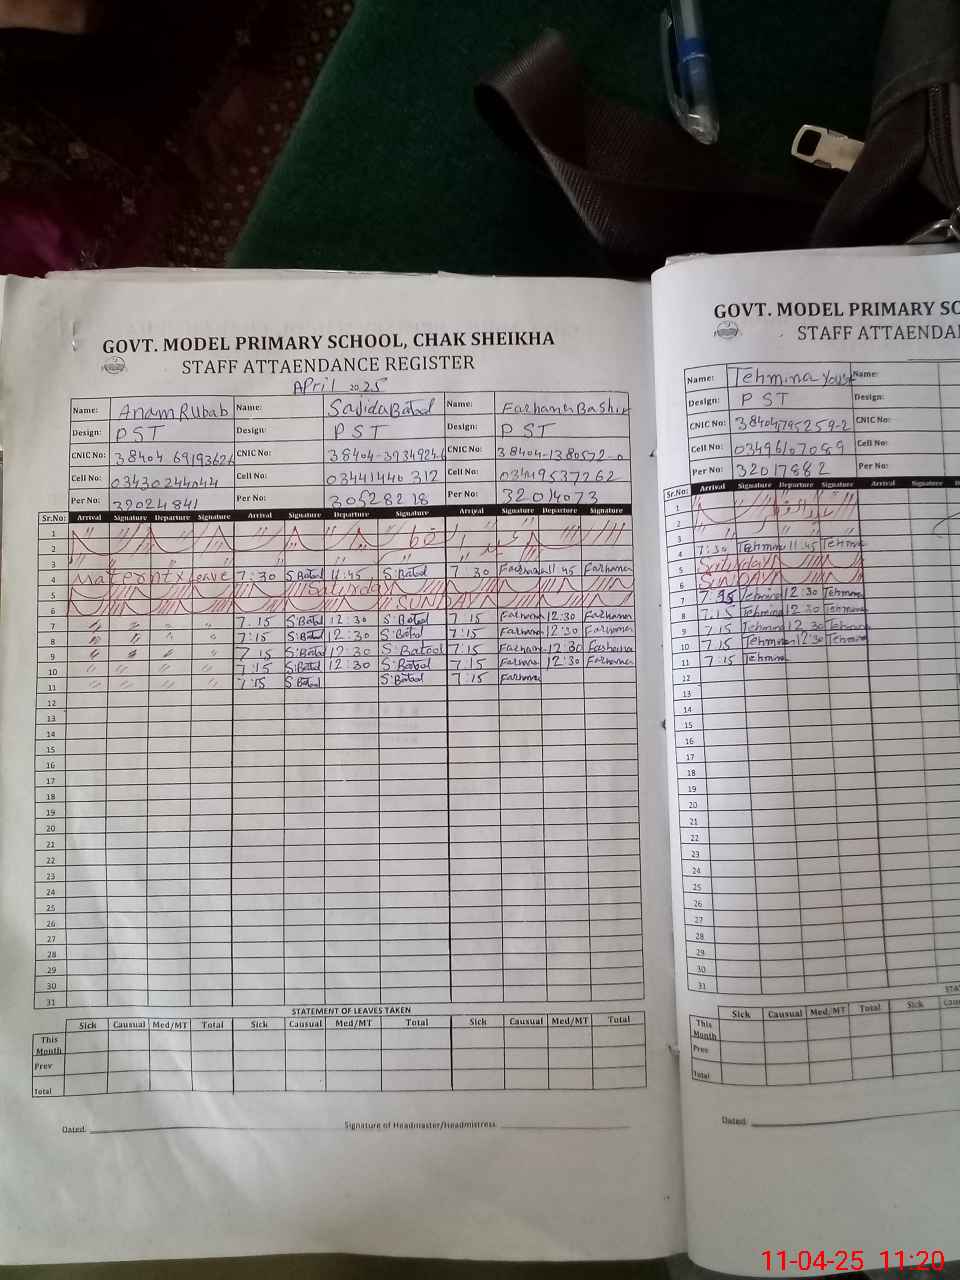 GOVT. MODEL PRIMARY SCHOOL, CHAK SHEIKHA
STAFF ATTAENDANCE REGISTER
April 2025
Name: Anam Rubab Name: Sajida Batool Name: Farhana Bashir
Design: PST Design: PST Design: PST
CNIC No: CNIC No: CNIC No: 38404-1380572-0
Cell No: 03430244044 Cell No: 03441440312 Cell No: 03449537262
Per No: 32024841 Per No: 30528218 Per No: 32014073
Sr.No: Arrival Signature Departure Signature Arrival Signature Departure Signature Arrival Signature Departure Signature
1
2
3
4 Maternty leave 7:30 S.Batool 11:45 S.Batool 7:30 Farhana 11:45 Farhana
5 Saturday
6 SUNDAY
7 " " " " 7.15 S.Batool 12:30 S.Batool 7.15 Farhana 12:30 Farhana
8 " " " " 7:15 S.Batool 12:30 S.Batool 7:15 Farhana 12:30 Farhana
9 " " " " 7.15 S.Batool 12:30 S.Batool 7.15 Farhana 12:30 Farhana
10 " " " " 7:15 S.Batool 12:30 S.Batool 7.15 Farhana 12:30 Farhana
11 " " " " 7:15 S.Batool S.Batool 7:15 Farhana
12
13
14
15
16
17
18
19
20
21
22
23
24
25
26
27
28
29
30
31
STATEMENT OF LEAVES TAKEN
Sick Causual Med/MT Total Sick Causual Med/MT Total Sick Causual Med/MT Total
This Month
Prev
Total
Dated. Signature of Headmaster/Headmistress
GOVT. MODEL PRIMARY SC
STAFF ATTAENDA
Name: Tehmina Yousaf Name:
Design: PST Design:
CNIC No: CNIC No:
Cell No: 03496107089 Cell No:
Per No: 32017882 Per No:
Sr.No: Arrival Signature Departure Signature Arrival Signature
1
2
3
4 7:30 Tehmina 11:45 Tehmina
5 Saturday
6 SUNDAY
7 7.15 Tehmina 12:30 Tehmina
8 7.15 Tehmina 12:30 Tehmina
9 7.15 Tehmina 12:30 Tehmina
10 7.15 Tehmina 12:30 Tehmina
11 7:15 Tehmina
12
13
14
15
16
17
18
19
20
21
22
23
24
25
26
27
28
29
30
31
STA
Sick Causual Med/MT Total Sick Cau
This Month
Prev
Total
Dated.
11-04-25 11:20